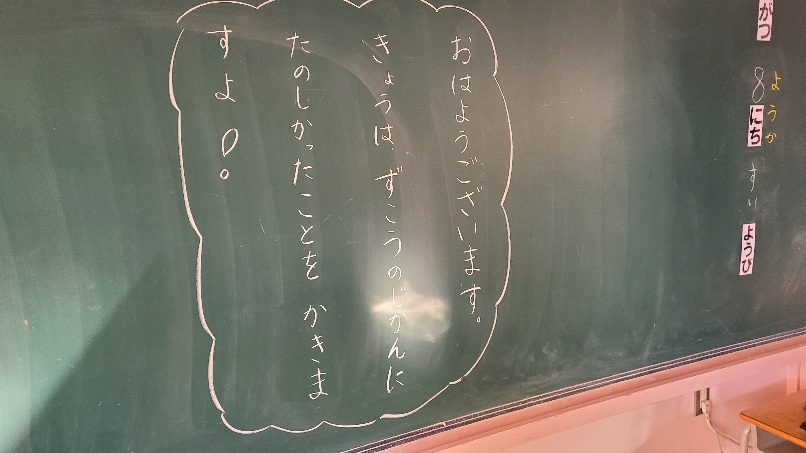 がつ 8 にち すい ようび
ようか
おはようございます。
きょうは ずこうのじかんに
たのしかったことを かきま
すよ!